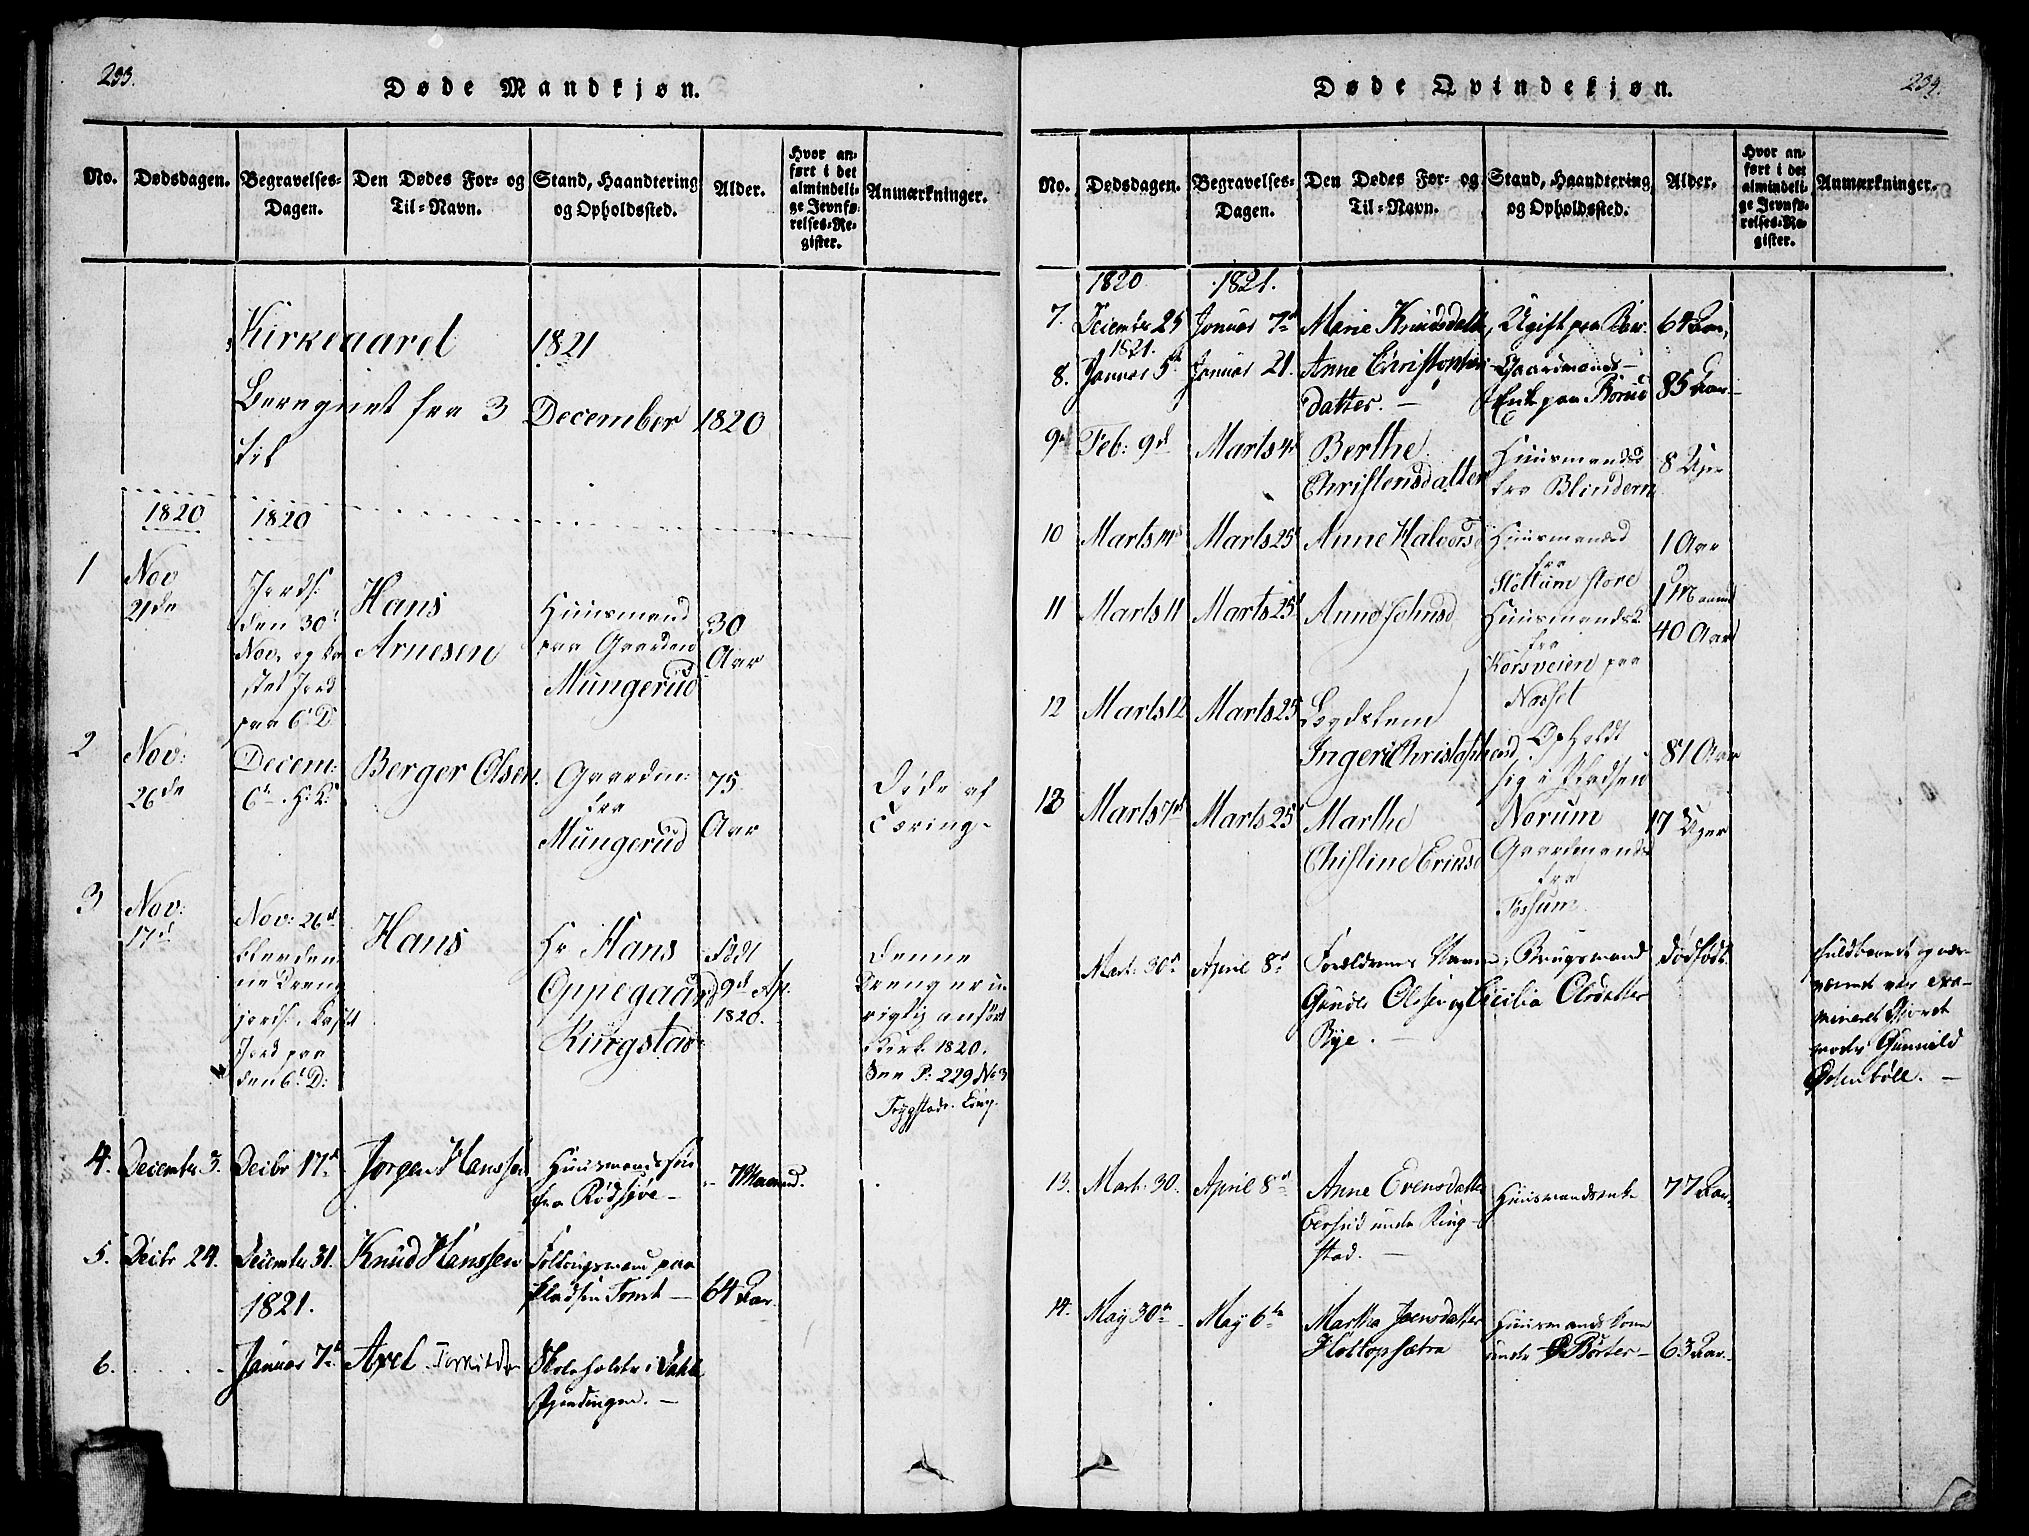 233.
Døde Mandkjøn.
No.
Dødsdagen.
Begravelses-
Dagen.
Den Dødes For- og
Til-Navn.
Stand, Haandtering
og Opholdssted.
Alder.
Hvor an-
ført i det
almindeli-
ge Jevnfø-
relses-Re-
gister.
Anmærkninger.
Kirkeaaret 1821
Beregnet fra 3 December 1820
til
1820 1820
1
Nov
21de
Jords:
den 30t
Nov. og ka
stet Jord
paa 6t D
Hans
Arnesen
Huusmand
paa Gaarden
Mungerud
30
Aar
2
Nov:
26de
Decem:
6t H: K:
Berger Olsen
Gaardm:
fra
Mungerud
75
Aar
Døde af
Tæring
3
Nov:
17d
Nov: 26d
blev den
ne Dreng
jords. kastet
Jord paa
den 6t D:
Hans
Hr Hans
Oppegaard
Ringstad
Født
9d Ap.
1820.
Denne
Dreng er u
rigtig anført
Kirk. 1820.
See P: 229 No 3
4. December 3. Decbr 17d Jørgen Hanssen
Huusmandssøn
fra Rødsjøe
7 Maaned.
5. Decbr 24. December 31. Knud Hanssen
Follougsmand paa
Pladsen Tomt 64 Aar.
1821.
6. Januar 7d Axel
Skoleholder i
234.
Døde Qvindekjøn.
No.
Dødsdagen.
Begravelses-
Dagen.
Den Dødes For- og
Til-Navn.
Stand, Haandtering
og Opholdssted.
Alder.
Hvor an-
ført i det
almindeli-
ge Jevnfø-
relses-Re-
gister.
Anmærkninger.
1820 1821.
7. December 25 Januar 7d Marie Knudsdatter, Ugift paa 64 Aar,
1821.
8. Januar 5t Januar 21. Anne Christophers
datter.
Gaardmands-
Enke paa Borud
85 Aar
9d Feb: 9d Marts 4d Berthe
Christensdatter
Huusmandsd
fra Blindern
8 Uger
10 Marts 14d Marts 25d Anne Halvorsd
Huusmandsd
fra
Slottum store
1 Aar
11 Marts 11 Marts 25d Anne Johnsd
Huusmandsk
fra
Korsveien paa
Næsset
1 Maaned
40 Aar
12 Marts 12 Marts 25
Lægdslem
Inger Christophersd
Opholdt
sig i Pladsen
Norum
81 Aar
13 Marts 7d Marts 25
Marthe
Christine Eriksd
Gaardmandsd
fra
Fossum
17 Uger
Mart: 30d April 8d
Forældrenes Navne, Brugsmand
Gunder Olsen og Cicilia Olsdatter
Bye.
dødfødt.
fuldbaaret og
været var exa-
mineret Gjord
moder Gunild
13. Mart: 30. April 8d Anne Evensdatter
under Ring-
stad.
Huusmandsenke
77 Aar
14. May 30te May 6te Martha Joensdatter
Slottopsætra
Huusmandskone
under Børter
63 Aar.